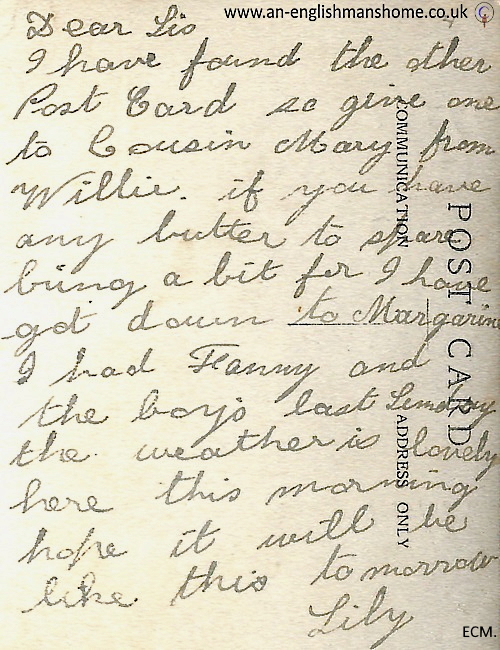 www.an-englishmanshome.co.uk
Dear Sis
I have found the other
Post Card so give one
to Cousin Mary from
Willie. if you have
any butter to spare
bring a bit for I have
got down to Margarine
I had Fanny and
the boys last Sunday
the weather is lovely
here this morning
hope it will be
like this tomorrow
Lily
POST CARD
COMMUNICATION
ADDRESS ONLY
ECM.